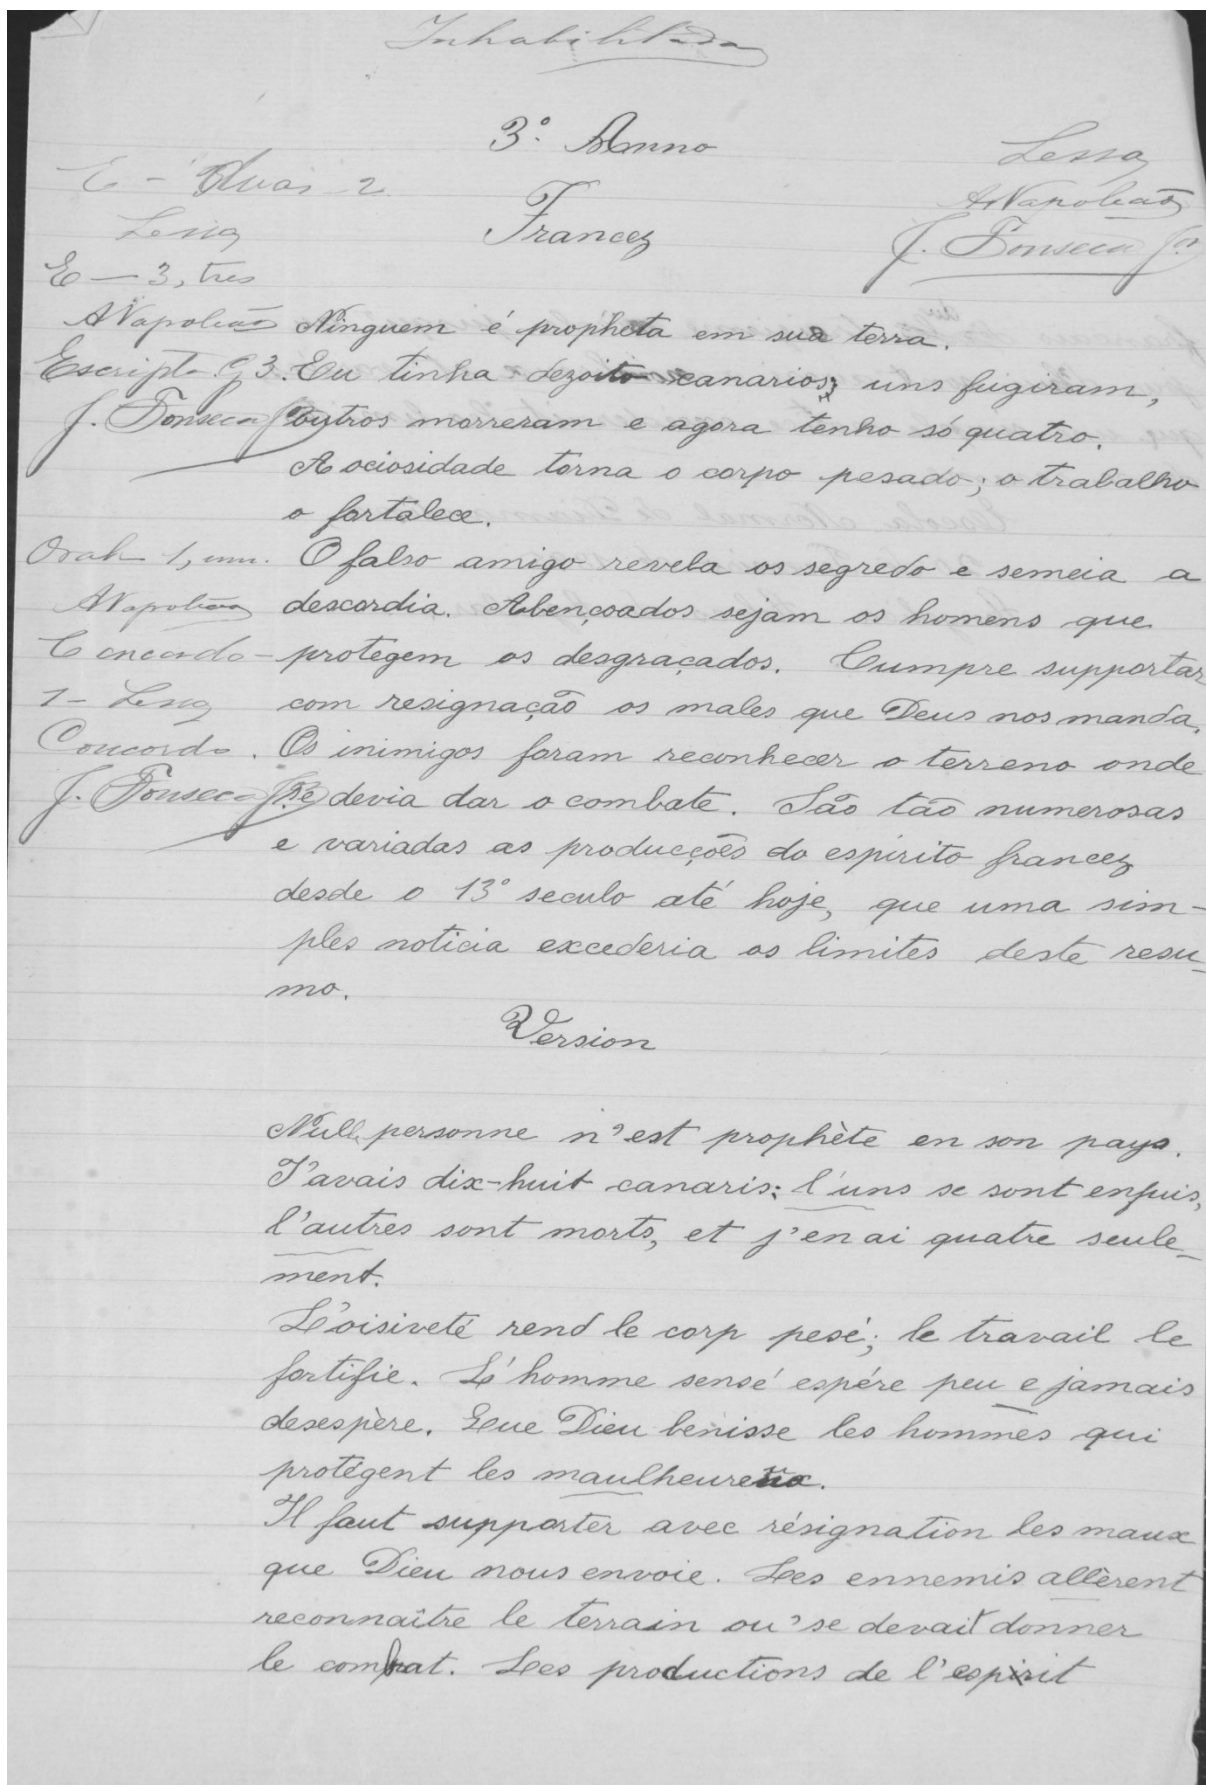 Inhabilitada
3º Anno
Francez
Lessa
ANapoleão
J. Fonseca Jor
E - duas 2
Lessa
E — 3, tres
ANapoleão
Escripta g 3.
J. Fonseca
Ninguem é propheta em sua terra.
Eu tinha dezoito canarios; uns fugiram,
outros morreram e agora tenho só quatro.
A ociosidade torna o corpo pesado; o trabalho
o fortalece.
Oral 1, um.
ANapoleão
Concordo -
1 - Lessa
Concordo.
J. Fonseca
O falso amigo revela os segredo e semeia a
descordia. Abençoados sejam os homens que
protegem os desgraçados. Cumpre supportar
com resignação os males que Deus nos manda.
Os inimigos foram reconhecer o terreno onde
se devia dar o combate. São tão numerosas
e variadas as producções do espirito francez
desde o 13º seculo até hoje, que uma sim-
ples noticia excederia os limites deste resu-
mo.
Version
Null personne n'est prophète en son pays.
J'avais dix-huit canaris; l'uns se sont enfuis,
l'autres sont morts, et j'en ai quatre seule-
ment.
L'oisiveté rend le corp pesé; le travail le
fortifie. L'homme sensé espére peu e jamais
desespère. Que Dieu benisse les hommes qui
protégent les maulheureux.
Il faut supporter avec résignation les maux
que Dieu nous envoie. Les ennemis allèrent
reconnaître le terrain ou' se devait donner
le combat. Les productions de l'espirit